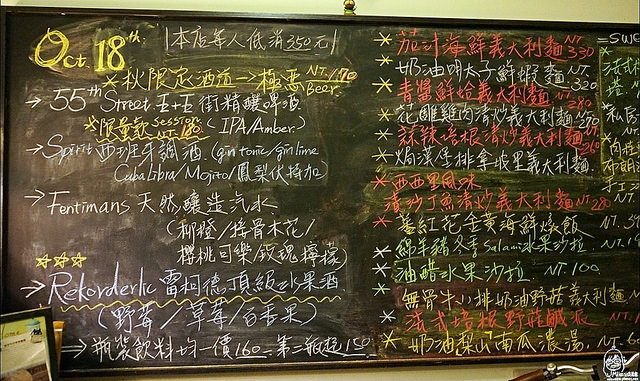 Oct 18th
本店每人低消350元
★秋限定酒道→極惡Beer NT.170
→55th Street 五十五街精釀啤酒
★限量款 Session NT.180 (IPA/Amber.)
→Spirit 西班牙調酒 (gin tonic/gin lime
Cuba libra/Mojito/鳳梨伏特加)
→Fentimans 天然釀造汽水
(柳橙/接骨木花/
櫻桃可樂/玫瑰檸檬)
☆☆☆
→Rekorderlic 雷柯德頂級水果酒
(野莓/草莓/百香果)
→瓶裝飲料均一價160. 第二瓶起150
★茄汁海鮮義大利麵 NT 330
★奶油明太子鮮蝦麵 NT. 320
★青醬鮮蛤義大利麵 NT. 280
★花雕雞肉清炒義大利麵 270
★蒜辣培根清炒義大利麵 260
★焗漢堡排拿坡里義大利麵
★西西里風味
清炒丁魚清炒義大利麵 NT 280
★蕃紅花金黃海鮮燉飯 NT.
★綿羊豬冬季Salami水果沙拉. NT.
★油醋水果沙拉 NT.100
★無骨牛小排奶油野菇義大利麵 N
★法式培根野菇鹹派 NT.
★奶油梨山南瓜濃湯. NT.
法式
私房